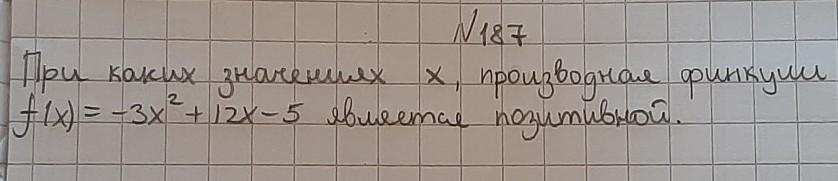 N187
При каких значениях x, производная функции
f(x) = -3x² + 12x - 5 является позитивной.